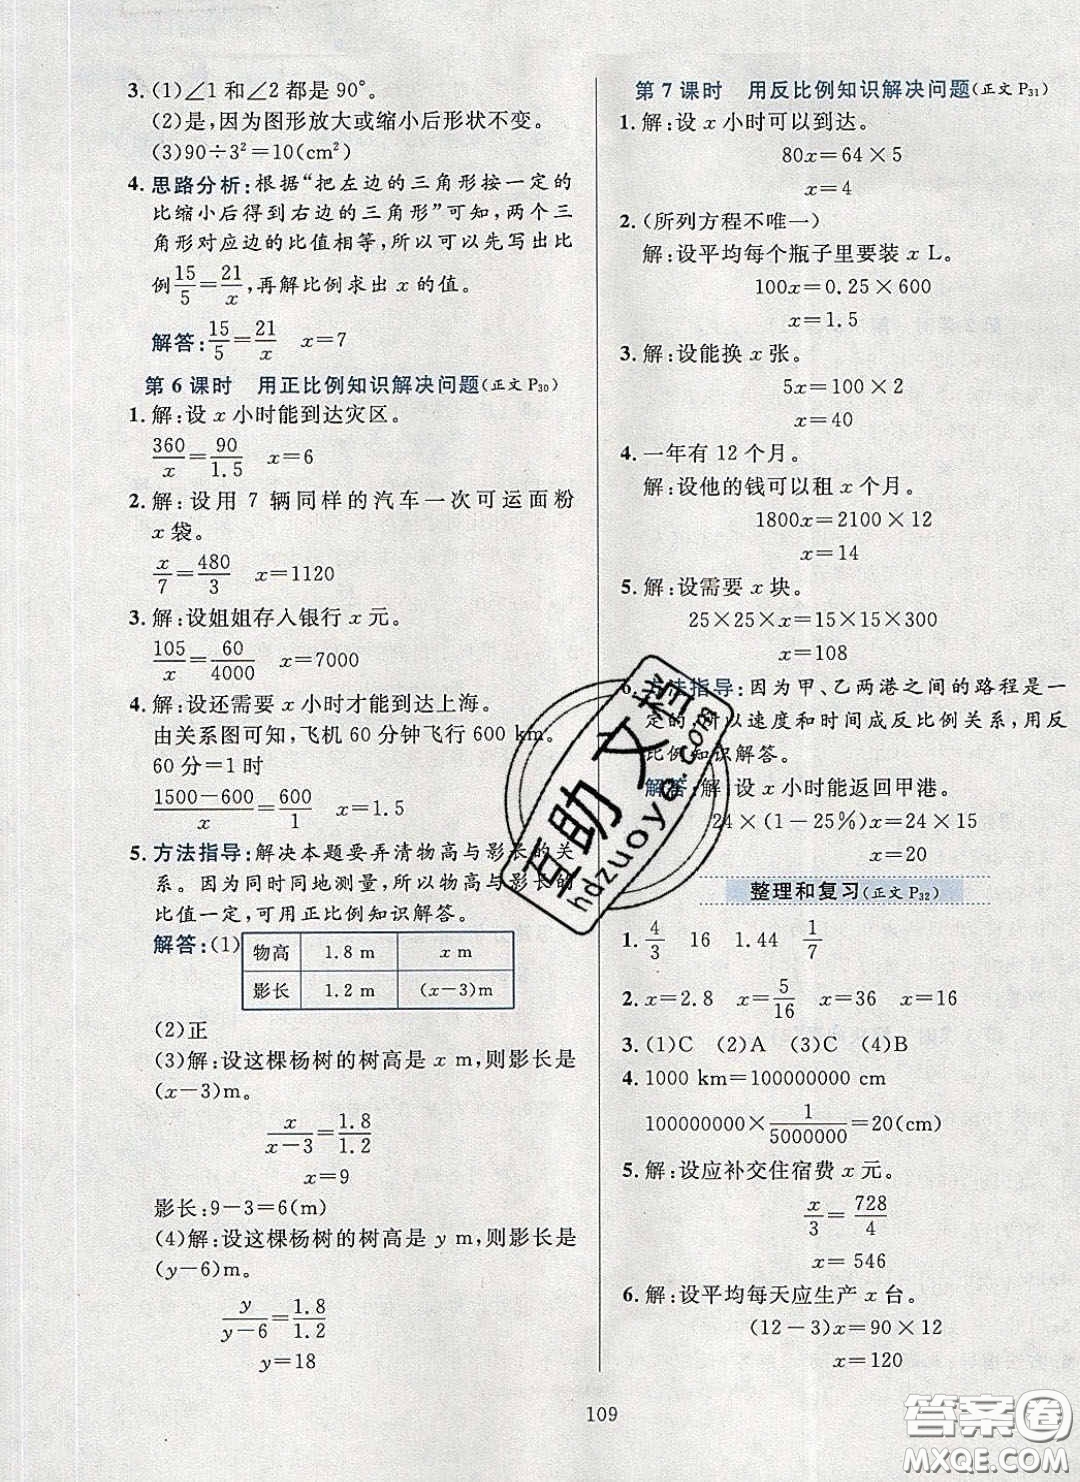 3. (1)∠1 和∠2 都是 90°。
(2)是,因为图形放大或缩小后形状不变。
(3)90÷3²=10(cm²)
4. 思路分析:根据“把左边的三角形按一定的
比缩小后得到右边的三角形”可知,两个三
角形对应边的比值相等,所以可以先写出比
例15/5=21/x,再解比例求出 x 的值。
解答:15/5=21/x x=7
第 6 课时 用正比例知识解决问题(正文 P30)
1. 解:设 x 小时能到达灾区。
360/x=90/1.5 x=6
2. 解:设用 7 辆同样的汽车一次可运面粉
x 袋。
x/7=480/3 x=1120
3. 解:设姐姐存入银行 x 元。
105/x=60/4000 x=7000
4. 解:设还需要 x 小时才能到达上海。
由关系图可知,飞机 60 分钟飞行 600 km。
60 分=1 时
1500-600/x=600/1 x=1.5
5. 方法指导:解决本题要弄清物高与影长的关
系。因为同时同地测量,所以物高与影长的
比值一定,可用正比例知识解答。
解答:(1) 物高 1.8 m x m
影长 1.2 m (x-3)m
(2)正
(3)解:设这棵杨树的树高是 x m,则影长是
(x-3)m。
x/x-3=1.8/1.2
x=9
影长:9-3=6(m)
(4)解:设这棵杨树的树高是 y m,则影长是
(y-6)m。
y/y-6=1.8/1.2
y=18
第 7 课时 用反比例知识解决问题(正文 P31)
1. 解:设 x 小时可以到达。
80x=64×5
x=4
2. (所列方程不唯一)
解:设平均每个瓶子里要装 x L。
100x=0.25×600
x=1.5
3. 解:设能换 x 张。
5x=100×2
x=40
4. 一年有 12 个月。
解:设他的钱可以租 x 个月。
1800x=2100×12
x=14
5. 解:设需要 x 块。
25×25×x=15×15×300
x=108
6. 方法指导:因为甲、乙两港之间的路程是一
定的,所以速度和时间成反比例关系,用反
比例知识解答。
解答:解:设 x 小时能返回甲港。
24×(1-25%)x=24×15
x=20
整理和复习(正文 P32)
1. 4/3 16 1.44 1/7
2. x=2.8 x=5/16 x=36 x=16
3. (1)C (2)A (3)C (4)B
4. 1000 km=100000000 cm
100000000×1/5000000=20(cm)
5. 解:设应补交住宿费 x 元。
x/3=728/4
x=546
6. 解:设平均每天应生产 x 台。
(12-3)x=90×12
x=120
109
互助文档
hdzuoye.com
答案圈
MXQE.COM